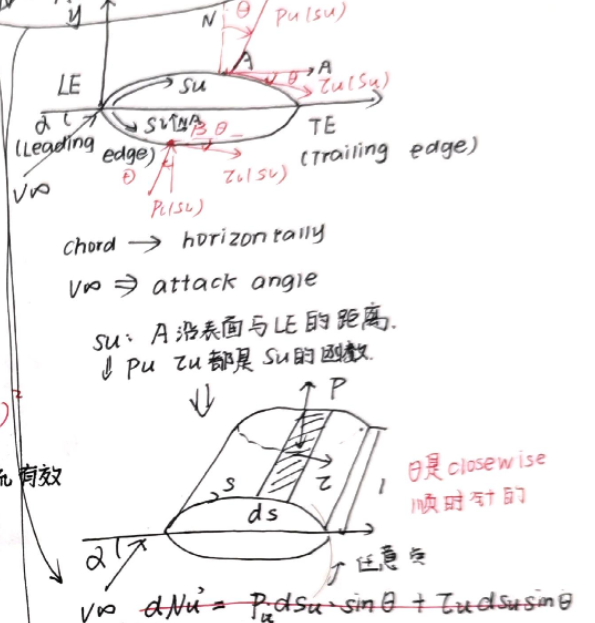 y
N θ Pu(su)
A → A
θ τu(su)
LE su
α su A β θ
(Leading edge) TE
(Trailing edge)
θ τl(su)
V∞ Pl(su)
chord → horizontally
V∞ ⇒ attack angle
su: A沿表面与LE的距离.
↓ Pu τu都是su的函数.
⇓
P
)²
有效
s τ 1
ds
θ是closewise
顺时针的
α
↗任意点
V∞ dNu' = Pu dsu·sinθ + τu dsu sinθ